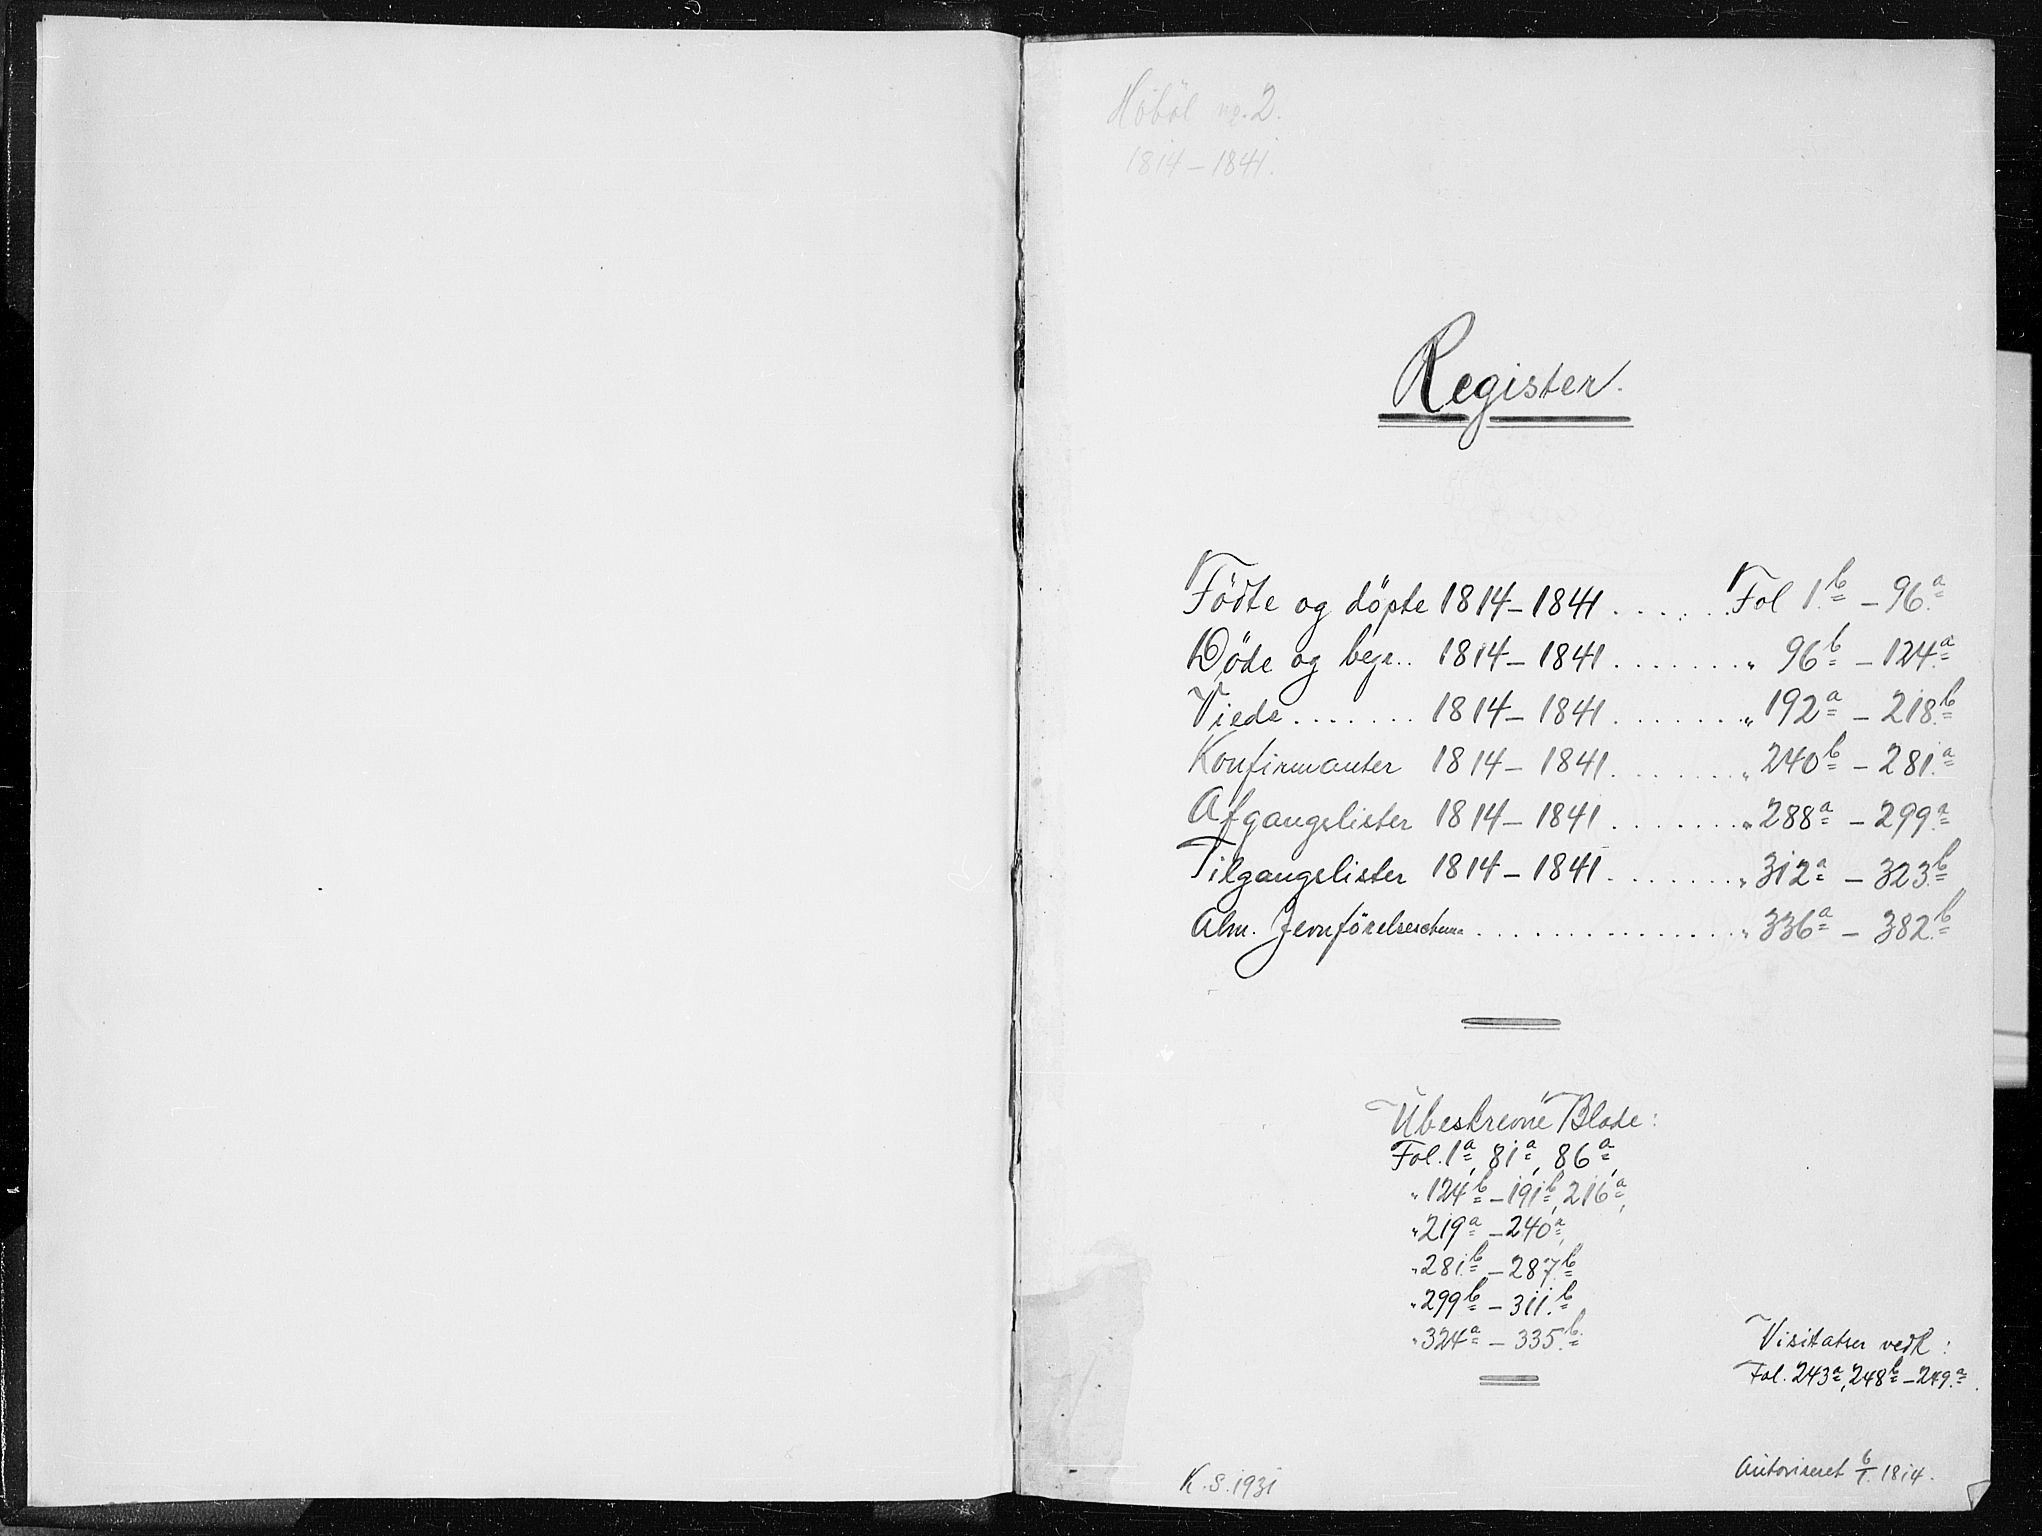 Høböl nr. 2.
1814 – 1841.
Register.
Födte og döpte 1814 – 1841 . . . . . . Fol 1.b – 96.a
Döde og begr.. 1814 – 1841 . . . . . . . „ 96b – 124.a
Viede . . . . . . . 1814 – 1841 . . . . . . . „ 192a – 218.b
Konfirmanter 1814 – 1841 . . . . . . . „ 240b – 281.a
Afgangslister 1814 – 1841 . . . . . . . „ 288a – 299.a
Tilgangslister 1814 – 1841 . . . . . . . „ 312a – 323.b
Alm. Jevnförelseschema . . . . . . . . . . . . . . . „ 336a – 382.b
Ubeskrevne Blade:
Fol. 1a, 81a, 86a,
„ 124b – 191b, 216a,
„ 219a – 240a,
„ 281.b – 287.b
„ 299b – 311.b
„ 324a – 335.b
Visitatser vedk:
Fol. 243a, 248b – 249.a.
K. S. 1931
Autoriseret 6/1. 1814.